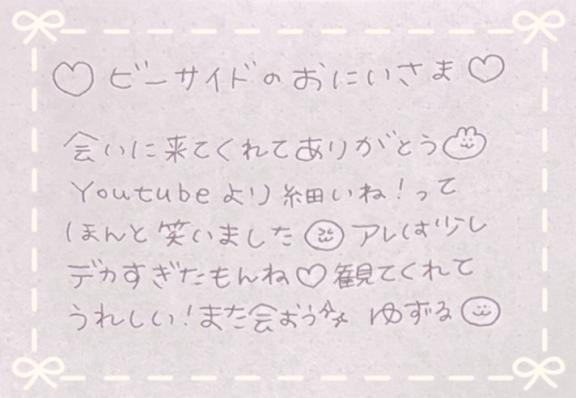 ♡ビーサイドのおにいさま♡
会いに来てくれてありがとう
Youtubeより細いね!って
ほんと笑いました アレは少し
デカすぎたもんね♡観てくれて
うれしい!また会おう ゆずる